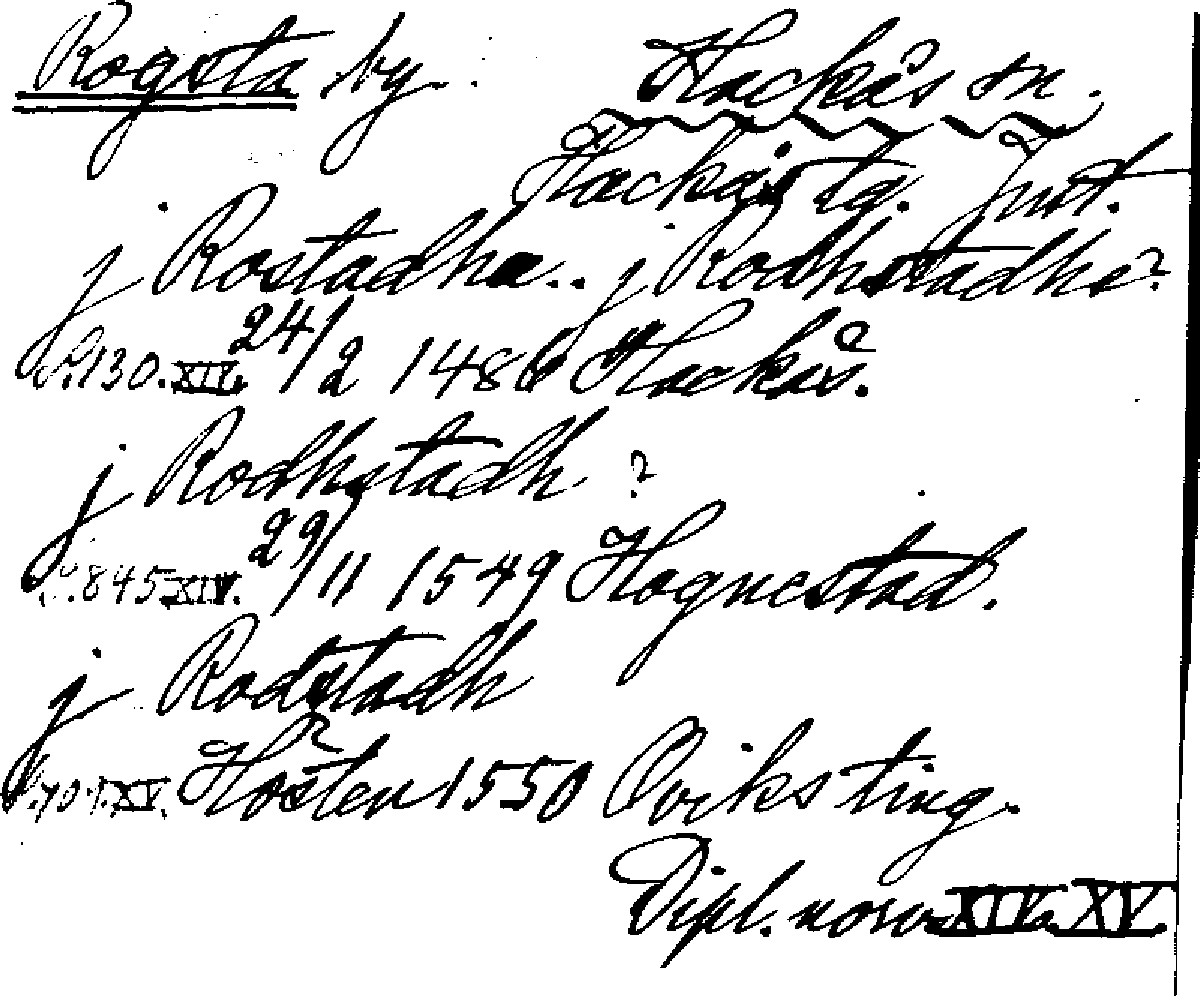 Rogsta by. Hackås sn.
Hackås tg. Jmt.
j Rostadha.. j Rodhstadhe?
S.130.XIV. 24/2 1486 Hackås.
j Rodhstadh ?
S.845 XIV. 29/11 1549 Hognestad.
j Rodstadh
S.701.XV. Hösten 1550 Oviks ting.
Dipl. norv. XIV. XV.